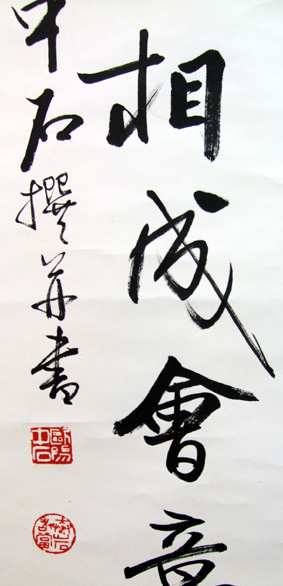 相成會意
中石撰并書
歐陽中石